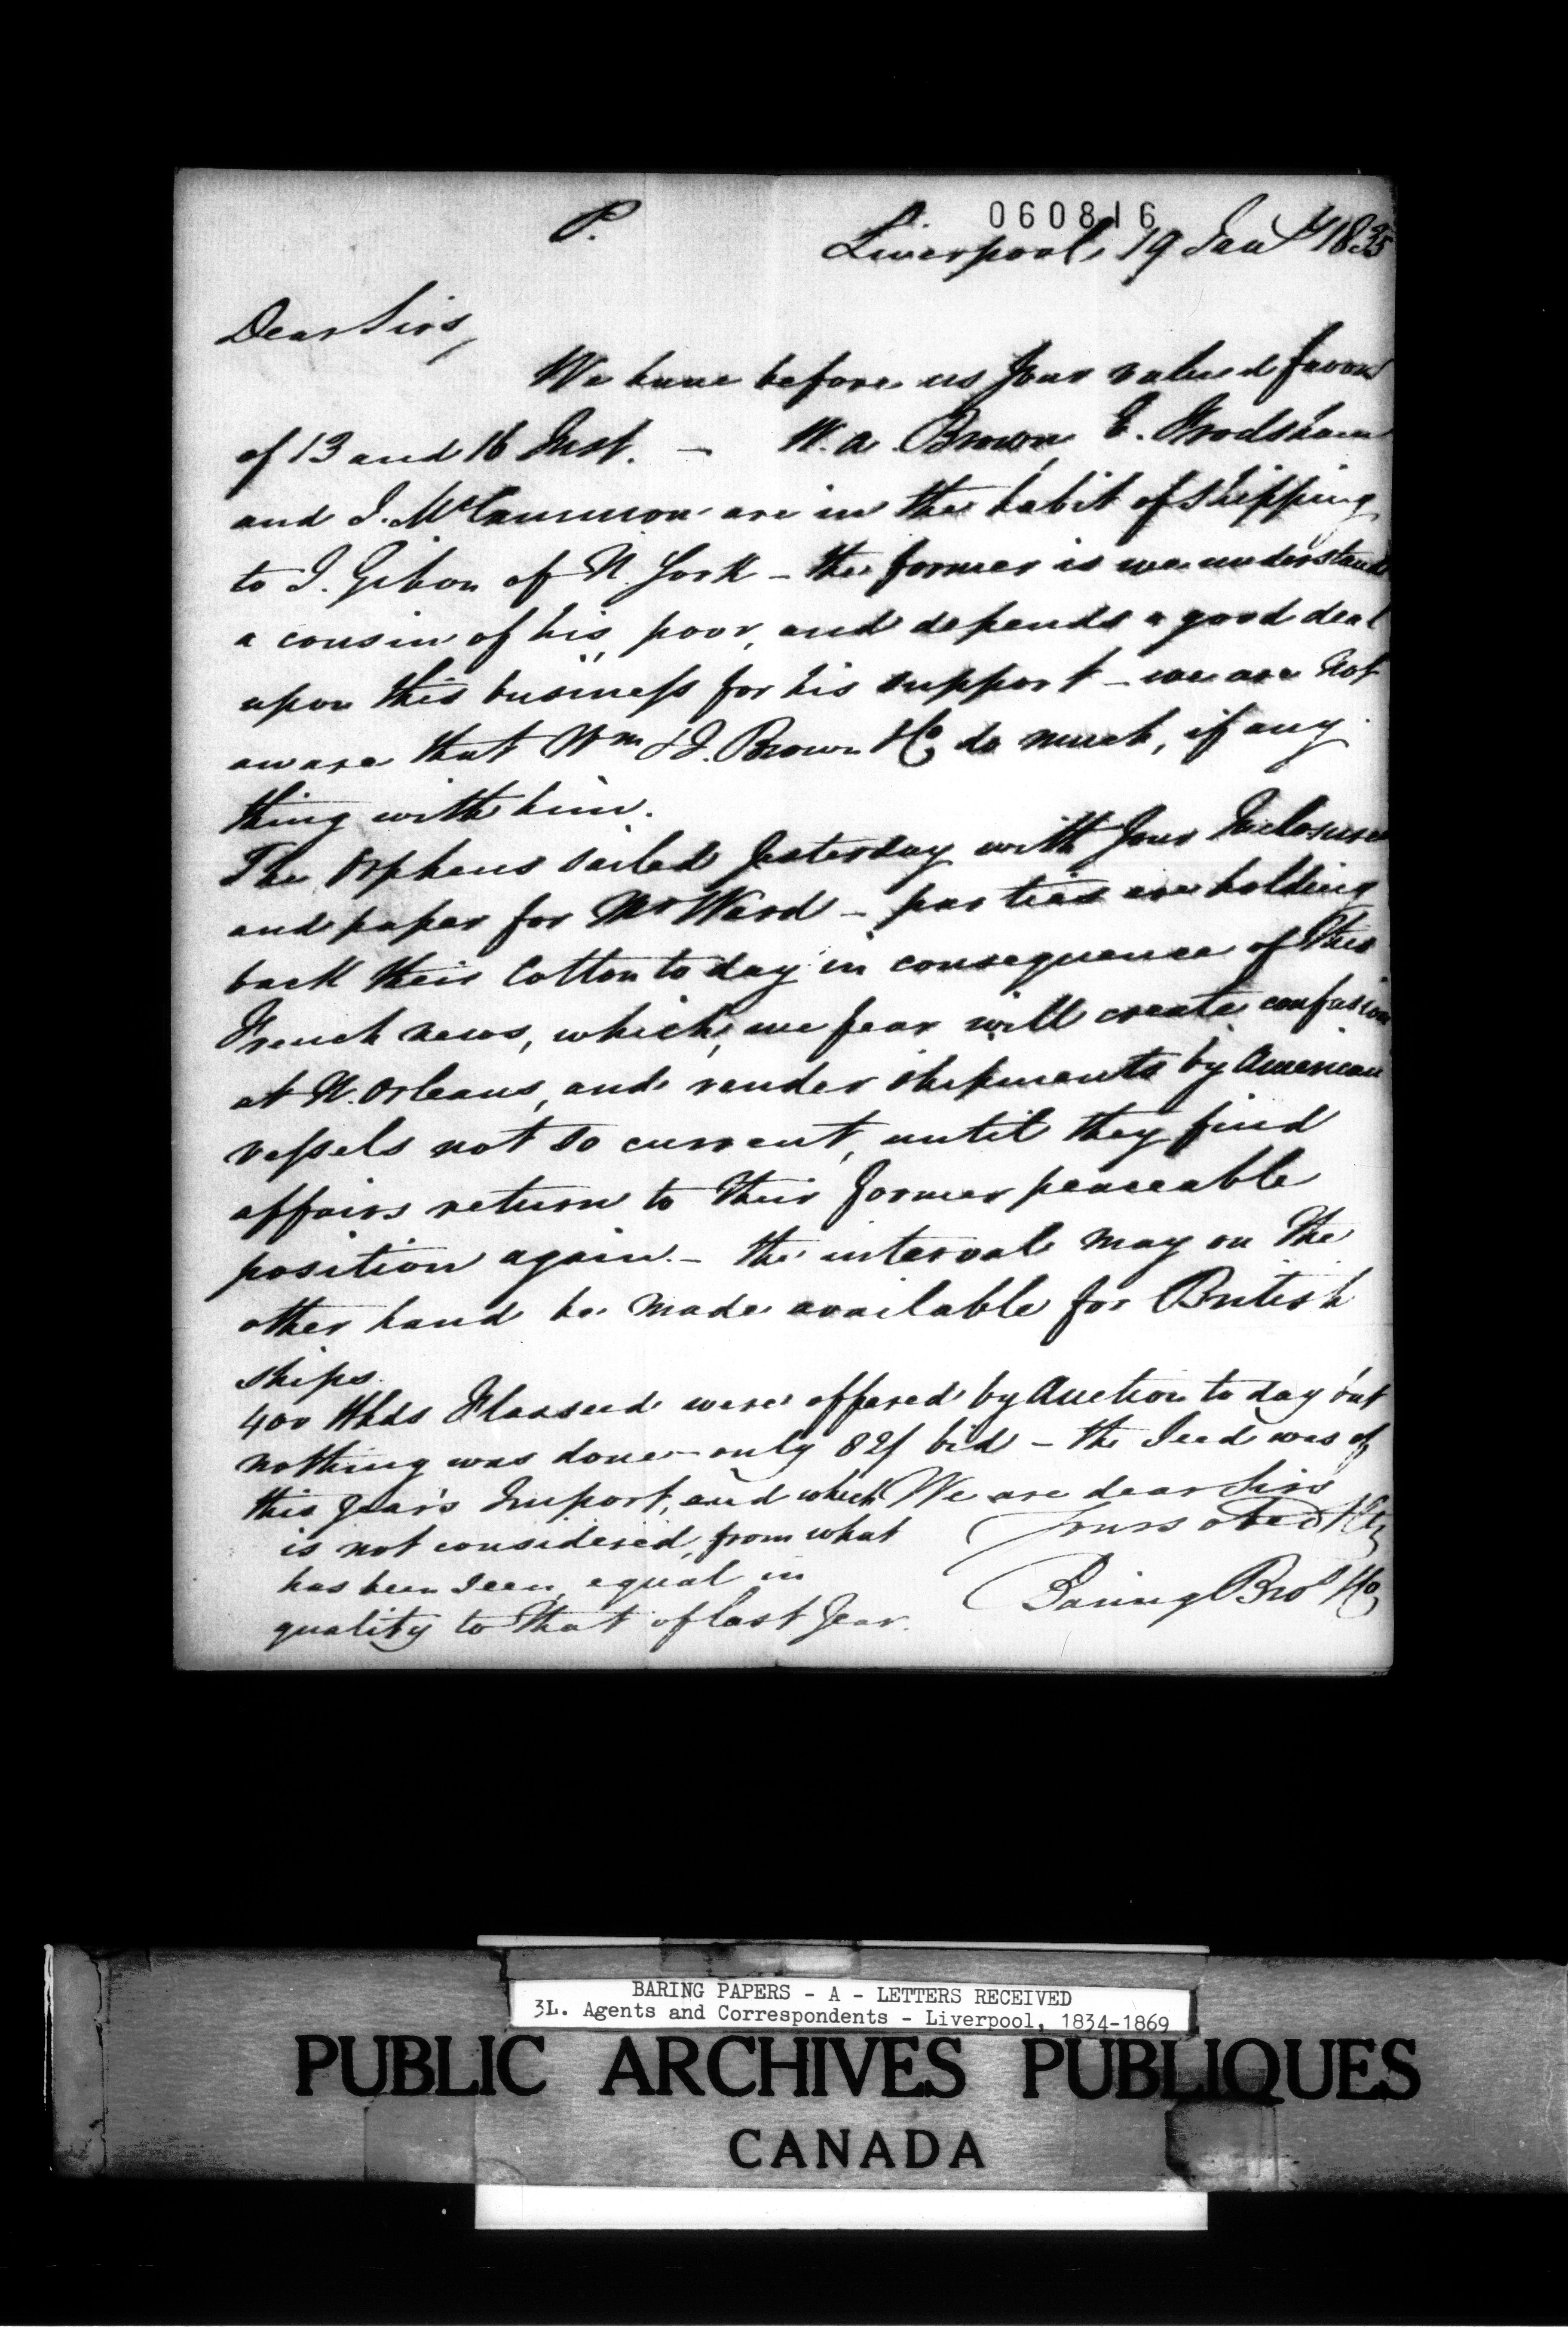 P.
060816
Liverpool, 19 Jany 1835
Dear Sirs,
We have before us your valued favors
of 13 and 16 Inst. — W. A. Brown, E. Frodsham
and J. McCammon are in the habit of shipping
to J. Gihon of N. York – the former is we understand
a cousin of his, poor, and depends a good deal
upon this business for his support – we are not
aware that Wm & J. Brown & Co. do much, if any
thing with him.
The Orpheus sailed yesterday with your Inclosures
and paper for Mr Ward – parties are holding
back their Cotton to day in consequence of the
French news, which, we fear will create confusion
at N. Orleans, and render shipments by American
vessels not so current, until they find
affairs return to their former peaceable
position again. – the interval may on the
other hand be made available for British
ships.
400 Hhds Flaxseed were offered by Auction to day but
nothing was done – only 82/ bid – the Seed was of
this year's Import, and which We are dear Sirs
is not considered, from what Yours obed
has been seen, equal in Baring Bros & Co
quality to that of last year.
BARING PAPERS - A - LETTERS RECEIVED
3L. Agents and Correspondents - Liverpool, 1834-1869
PUBLIC ARCHIVES PUBLIQUES
CANADA